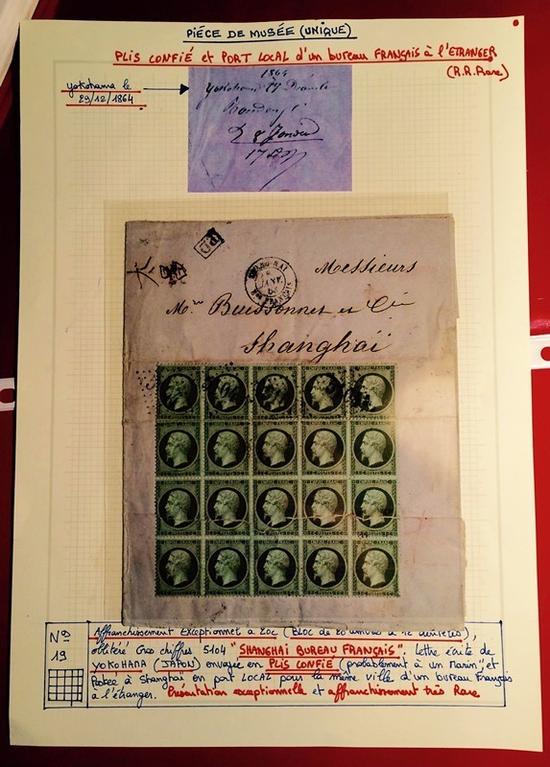 PIÉCE DE MUSÉE (UNIQUE)
PLIS CONFIÉ et PORT LOCAL d'un bureau FRANÇAIS à l'ETRANGER
(R.R.Rare)
Yokohama le
29/12/1864
1864
Yokohama
PD
SHANG-HAI
JANV.
Messieurs
Buissonnet et Cie
Shanghaï
EMPIRE FRANC
POSTES
N°
19
Affranchissement Exceptionnel à 20c (Bloc de 20 timbres
oblitéré Gros chiffres 5104 "SHANGHAI BUREAU FRANÇAIS". Lettre écrite de
YOKOHAMA (JAPON) envoyée en PLIS CONFIÉ (probablement à un marin", et
Postée à Shangaï en port LOCAL pour la même ville d'un bureau Français
à l'étranger. Présentation exceptionnelle et affranchissement très Rare